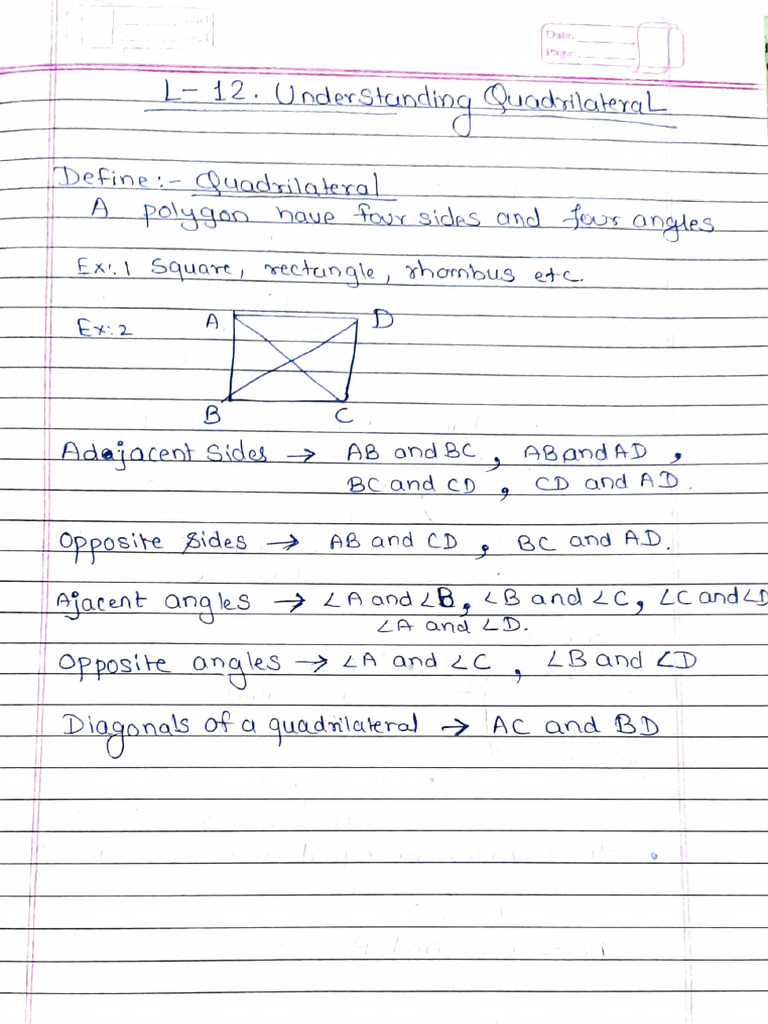 Date:
Page:
L-12. Understanding Quadrilateral
Define:- Quadrilateral
A polygon have four sides and four angles
Ex:.1 Square, rectangle, rhombus etc.
Ex:.2
A D
B C
Adejacent Sides → AB and BC, AB and AD,
BC and CD, CD and AD.
Opposite Sides → AB and CD, BC and AD.
Ajacent angles → ∠A and ∠B, ∠B and ∠C, ∠C and ∠D
∠A and ∠D.
Opposite angles → ∠A and ∠C, ∠B and ∠D
Diagonals of a quadrilateral → AC and BD